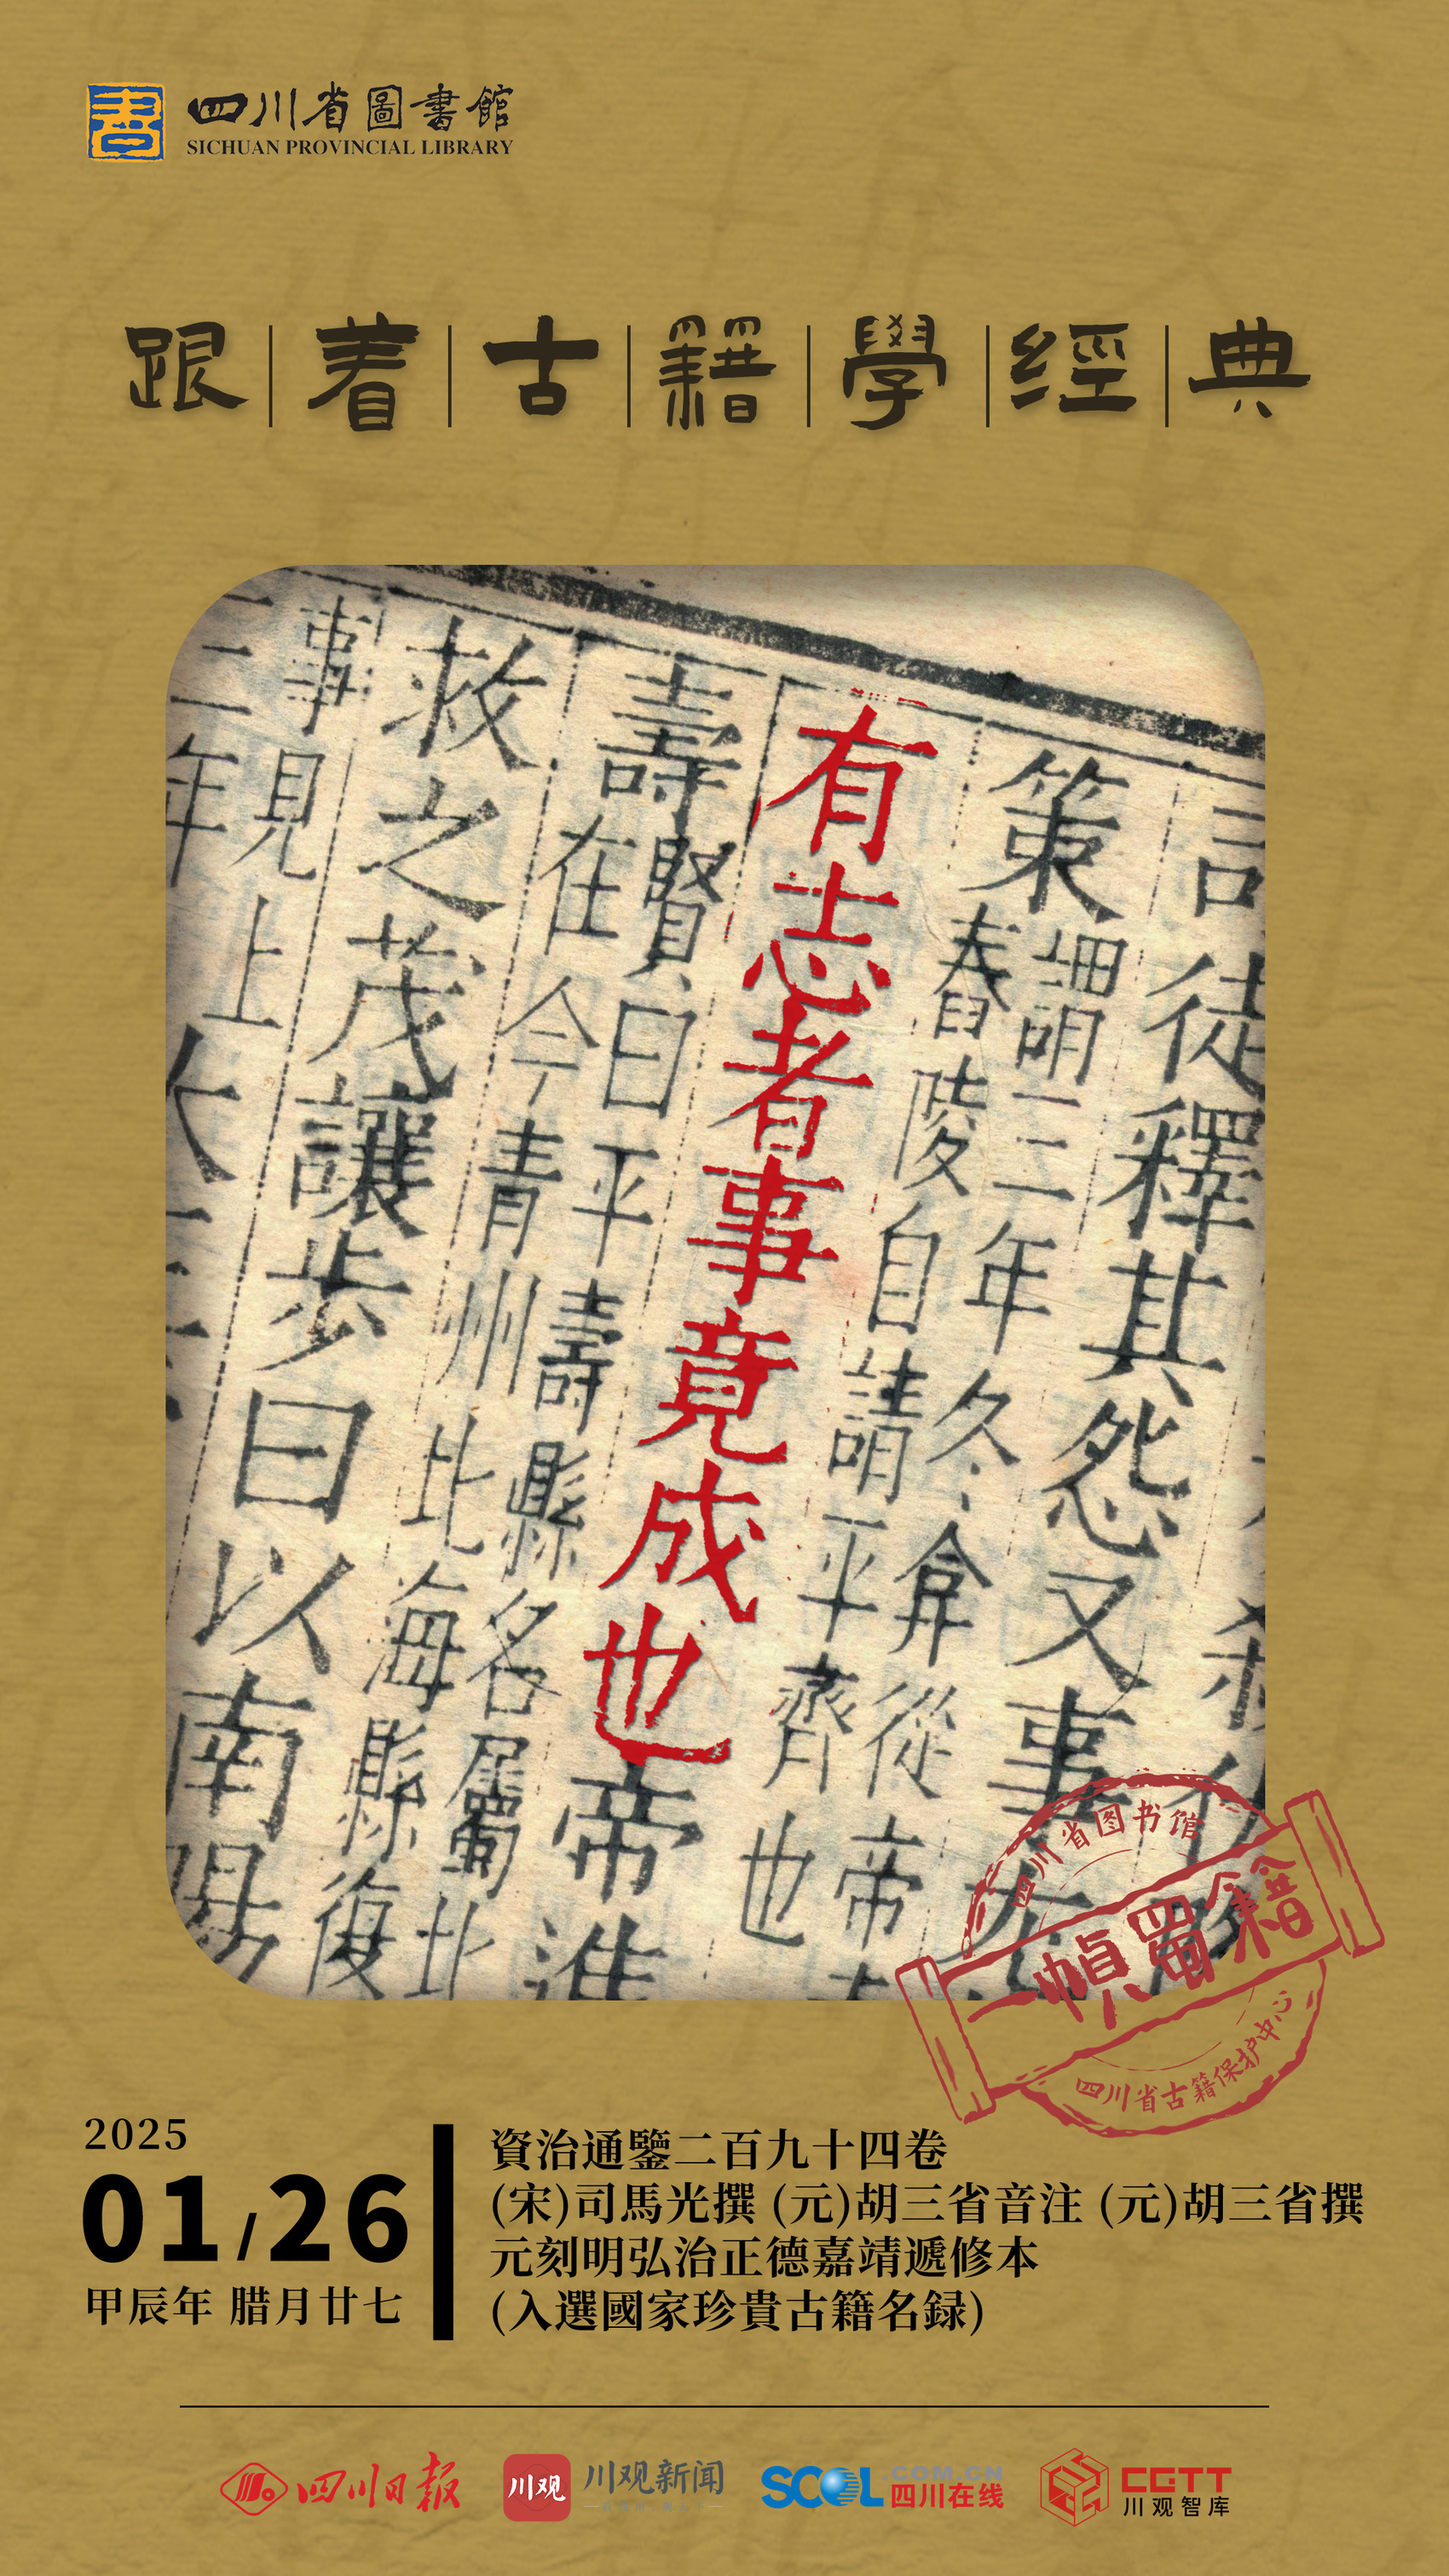 四川省圖書館
SICHUAN PROVINCIAL LIBRARY
跟着古籍學經典
徒釋其怨又事
策
謂三年冬弇從帝
舂陵自請平齊也
有志者事竟成也帝進
壽
賢曰平壽縣名屬北
在今青州北海縣復
救之茂讓步曰以南陽
事見上
三年
四川省图书馆
一幀蜀籍
四川省古籍保护中心
2025
01/26
甲辰年 腊月廿七
資治通鑒二百九十四卷
(宋)司馬光撰 (元)胡三省音注 (元)胡三省撰
元刻明弘治正德嘉靖遞修本
(入選國家珍貴古籍名録)
四川日报
川观
川观新闻
SCOL.COM.CN
四川在线
CGTT
川观智库